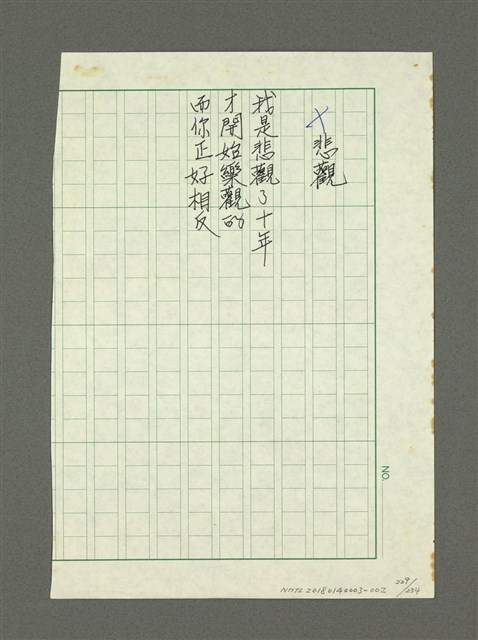 悲觀
我是悲觀了十年
才開始樂觀的
而你正好相反
NO.
NMTL20180140003-002
229/234